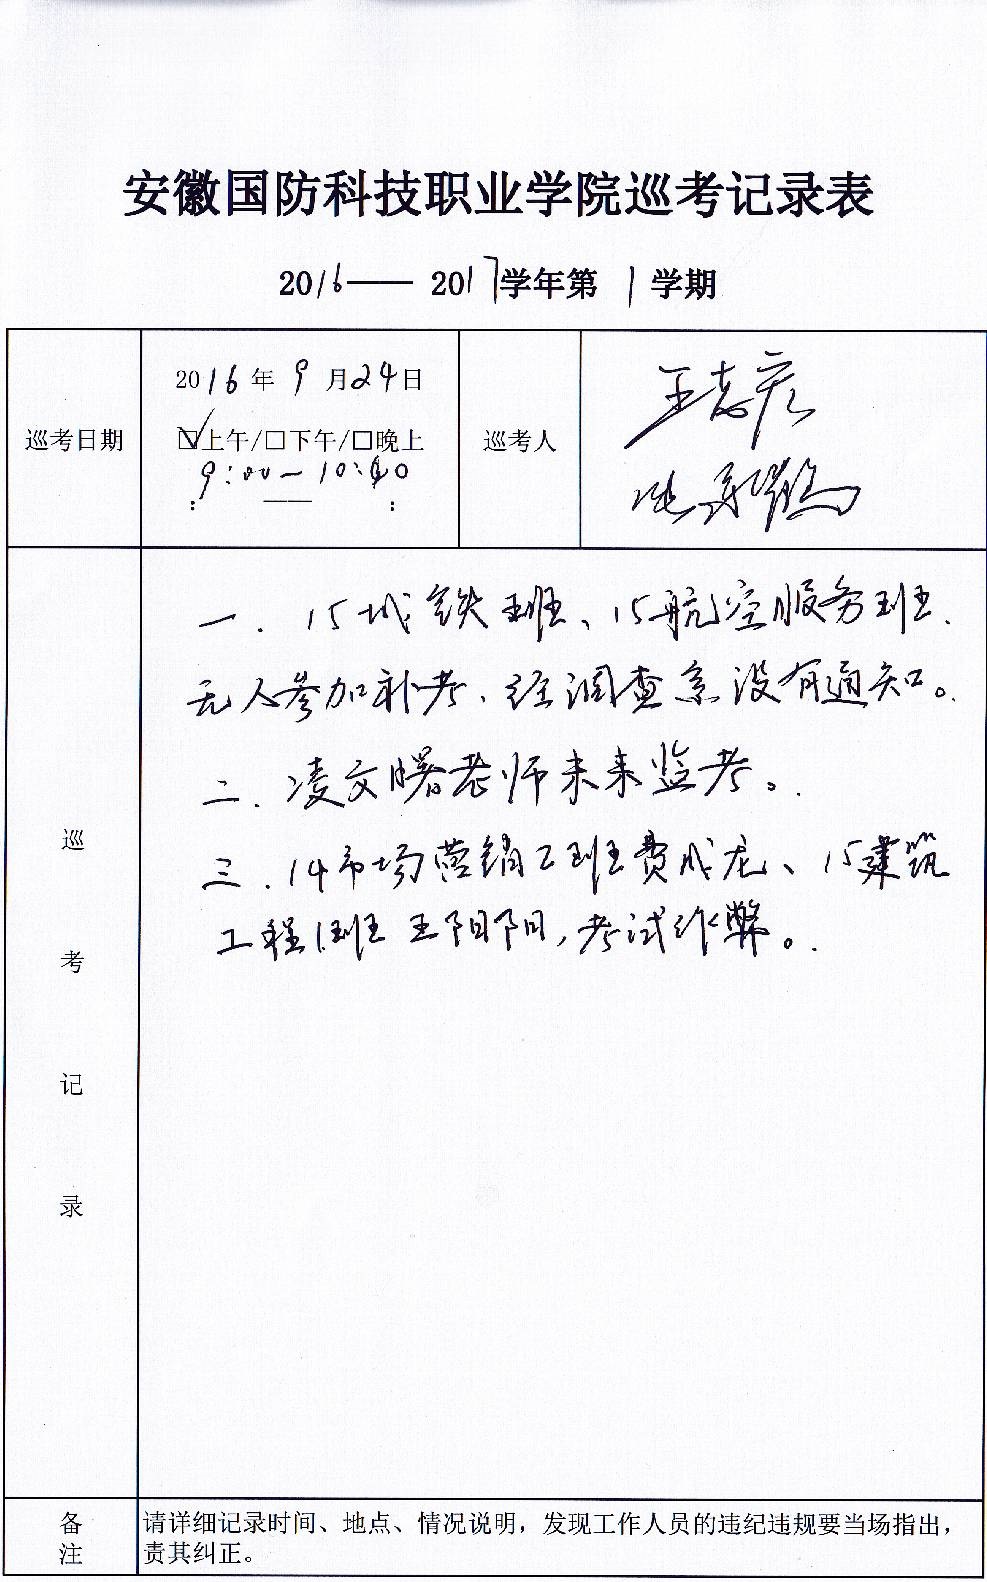 安徽国防科技职业学院巡考记录表
2016—— 2017学年第 1 学期
巡考日期
2016年 9 月24日
☑上午/□下午/□晚上
9:00—10:40
: —— :
巡考人
王志彦
一. 15城铁班、15航空服务班
无人参加补考、经调查系没有通知。
二. 凌文曙老师未来监考。
三. 14市场营销2班费成龙、15建筑
工程1班 王阳阳, 考试作弊。
巡
考
记
录
备
注
请详细记录时间、地点、情况说明，发现工作人员的违纪违规要当场指出，
责其纠正。